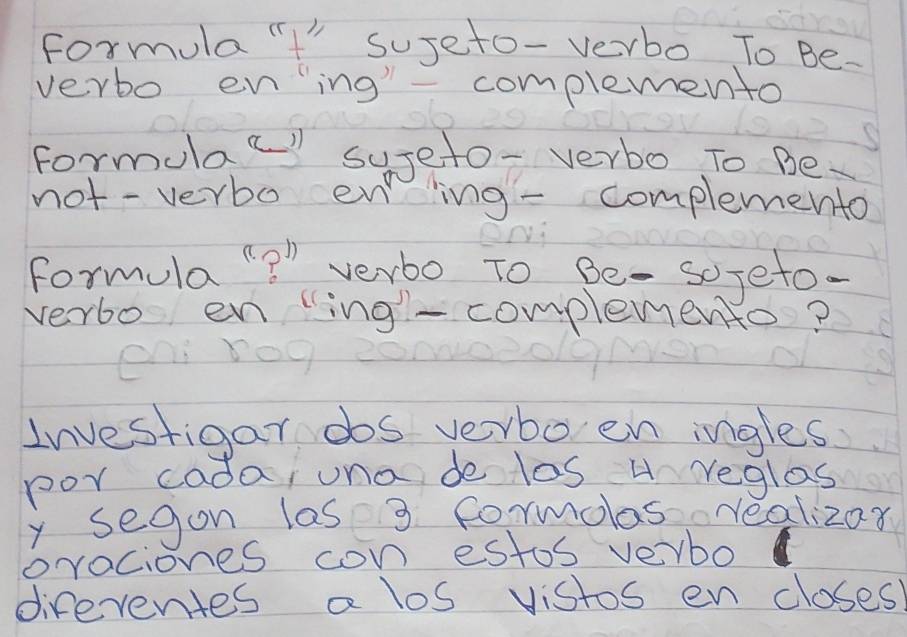 Formula "+" sujeto - verbo To Be -
verbo en "ing" - complemento
Formula "-" sujeto - verbo To Be -
not - verbo en "ing" - complemento
Formula "?" verbo To Be - sujeto -
verbo en "ing" - complemento ?
Investigar dos verbo en ingles
por cada una de las 4 reglas
y segun las 3 formulas realizar
oraciones con estos verbo (
diferentes a los vistos en clases)